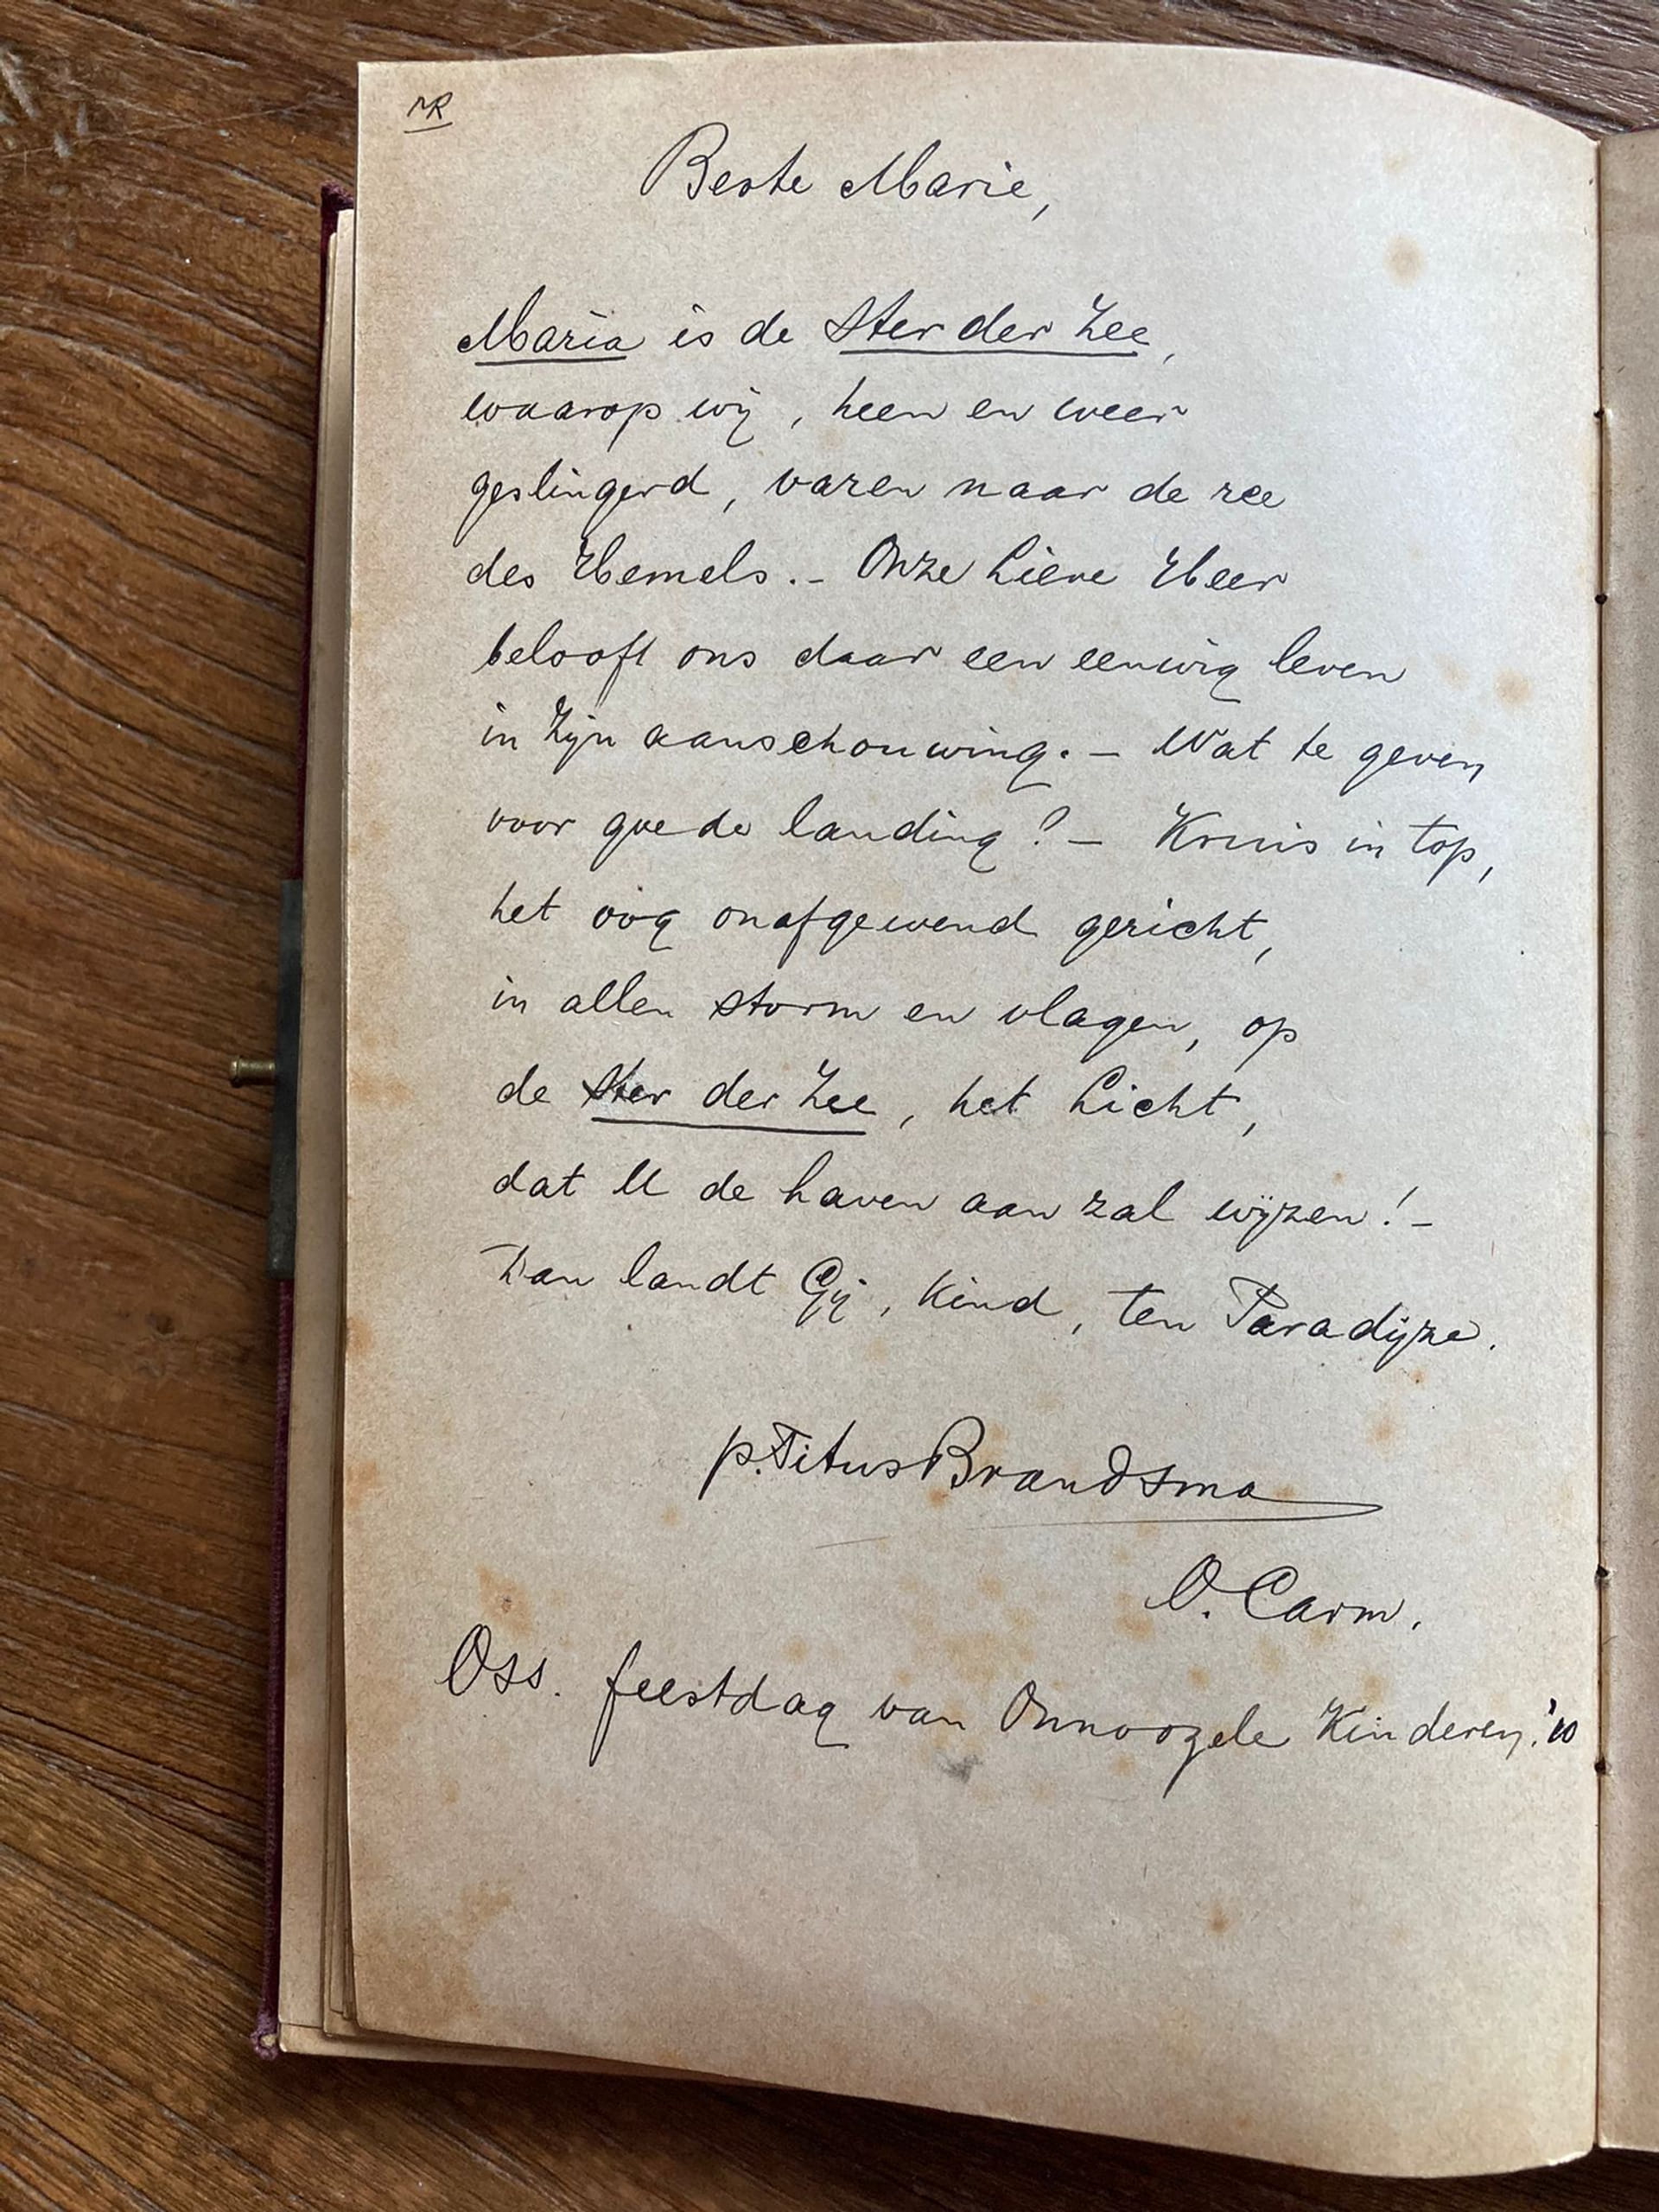 MR
Beste Marie,
Maria is de Ster der Zee,
waarop wij, heen en weer
geslingerd, varen naar de ree
des Hemels. - Onze Lieve Heer
belooft ons daar een eeuwig leven
in Zijn aanschouwing. - Wat te geven
voor goede landing? - Kruis in top,
het oog onafgewend gericht,
in allen storm en vlagen, op
de Ster der Zee, het Licht,
dat U de haven aan zal wijzen! -
Dan landt Gij, Kind, ten Paradijze.
p. Titus Brandsma
O. Carm.
Oss. feestdag van Onnoozele Kinderen. '10